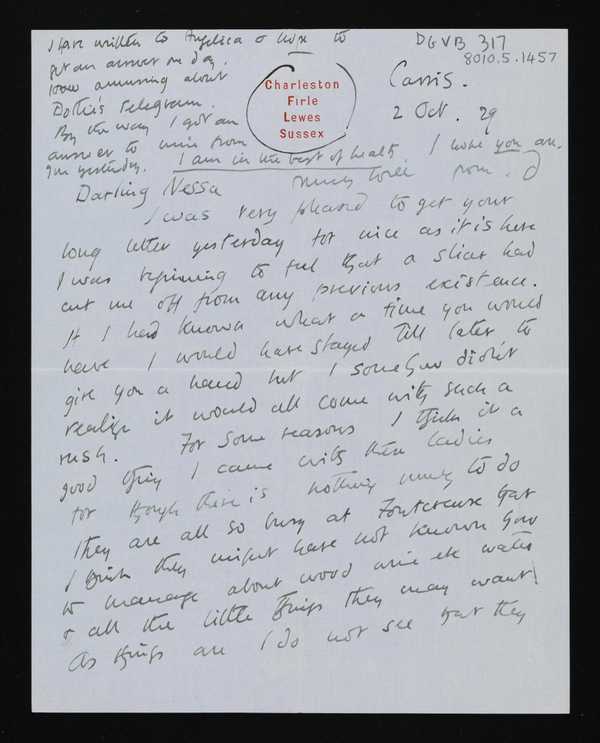 I have written to Angelica & hope to
get an answer one day.
amusing about
Dottie's telegram.
By the way I got an
answer to mine from
yesterday. I am in the best of health. I hope you are.
DGVB 317
8010.5.1457
Charleston
Firle
Lewes
Sussex
Cassis.
2 Oct. 29
Darling Nessa much love from D
I was very pleased to get your
long letter yesterday for nice as it is here
I was beginning to feel that a slice had
cut me off from any previous existence.
If I had known what a time you would
have I would have stayed till later to
give you a hand but I somehow didn't
realize it would all come with such a
rush. For some reasons I think it a
good thing I came with these ladies
for though there is nothing much to do
they are all so busy at Fontcreuse that
I think they might have not known how
to manage about wood wine etc water
& all the little things they may want!
As things are I do not see that they